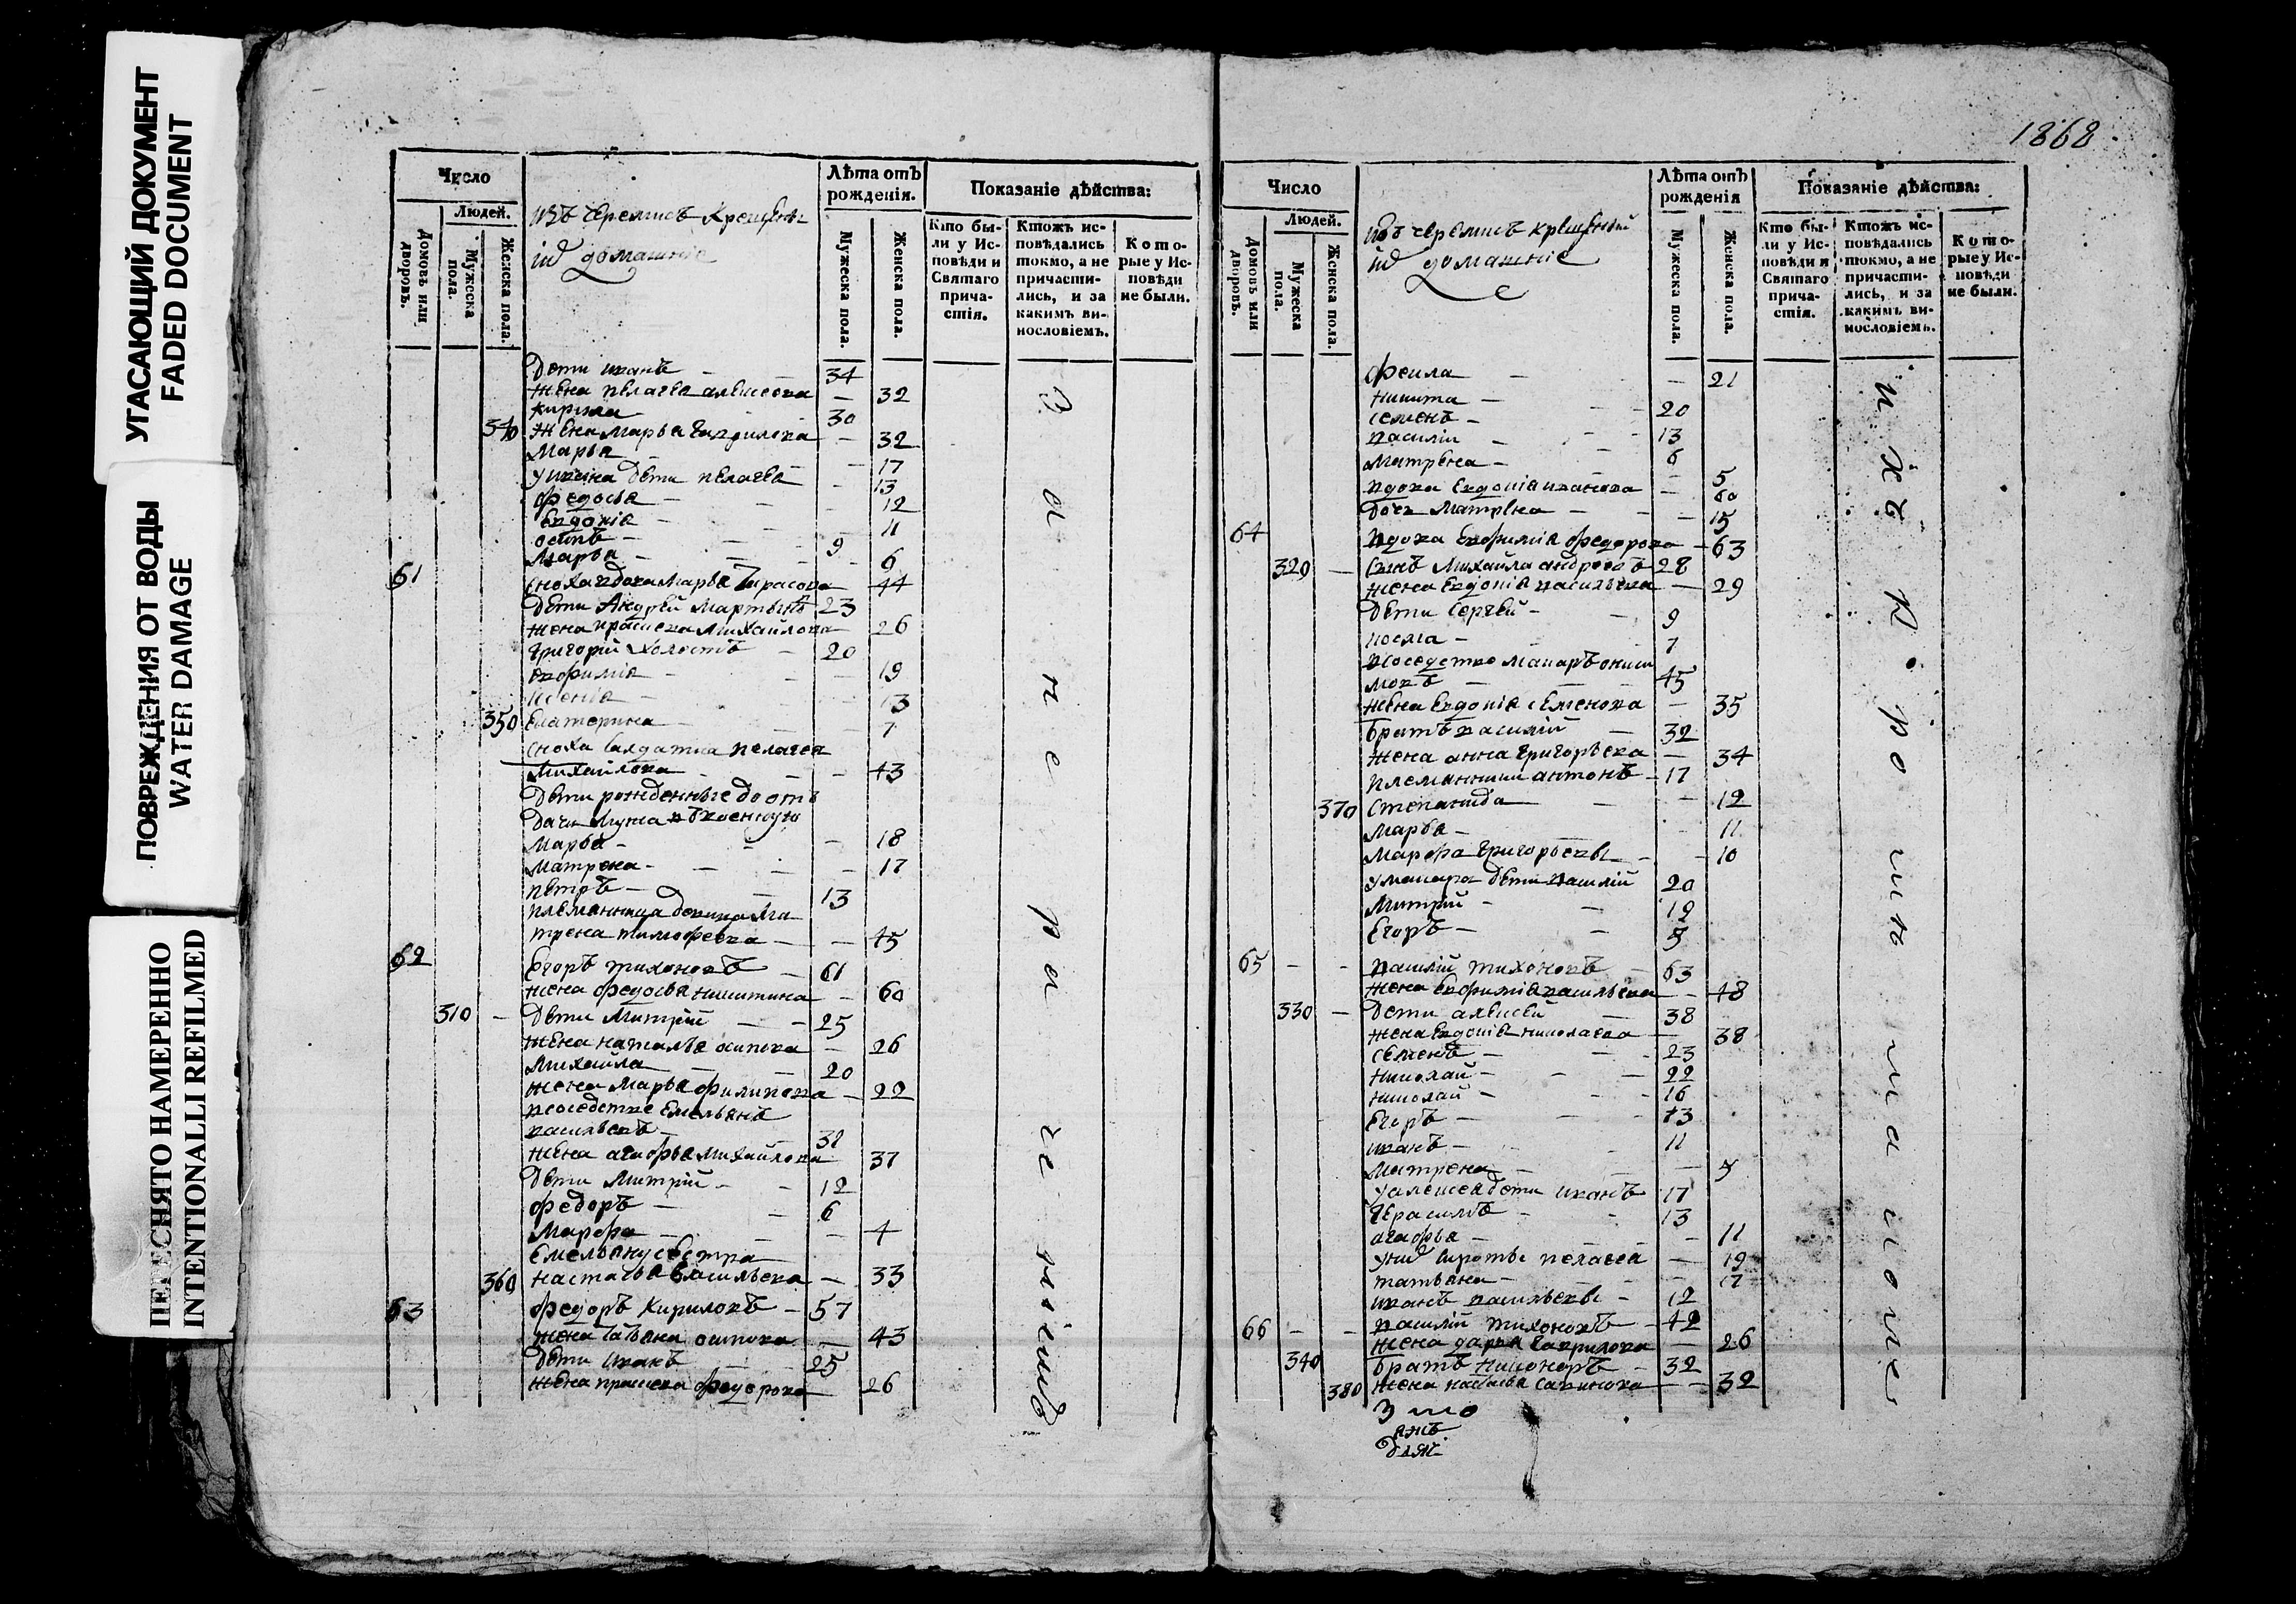 УГАСАЮЩИЙ ДОКУМЕНТ
FADED DOCUMENT
ПОВРЕЖДЕНИЯ ОТ ВОДЫ
WATER DAMAGE
ПЕРЕСНЯТО НАМЕРЕННО
INTENTIONALLI REFILMED
Число
Людей.
Домовъ или дворовъ.
Мужеска пола.
Женска пола.
изъ черемисъ крещены
ихъ домашніе
Лѣта отъ рожденія.
Мужеска пола.
Женска пола.
Показаніе дѣйства:
Кто бы-
ли у Ис-
повѣди и
Святаго
прича-
стія.
Ктожъ ис-
повѣдались
токмо, а не
причасти-
лись, и за
какимъ ви-
нословіемъ.
Кото-
рые у Ис-
повѣди
не были.
Дети иванъ 34
жена пелагея алексеева 32
кирила 30
340 жена марья гаврилова 32
Марья 17
у ивана дети пелагея 13
федосья 12
Евдокія 11
осипъ 9
Марья 6
61 сноха вдова Марья тарасова 44
Дети Андрей мартыновъ 23
жена прасковья Михайлова 26
григорій холостъ 20
Екфимія 19
13
350 Екатерина 7
сноха салдатка пелагея
Михайлова 43
Дети рожденные до от
дачи мужа в военную
Марья 18
Матрена 17
петръ 13
племянница девица Ма
трена тимофеева 45
62 Егоръ тихоновъ 61
жена федосья никитина 60
310 Дети Митрій 25
жена наталья осипова 26
Михайла 20
жена Марья филипова 22
в соседстве Емельянъ
васильевъ 32
жена агафья Михайлова 37
Дети Митрій 12
федоръ 6
Марфа 4
Емельяну сестра
360 настасья васильева 33
63 федоръ кириловъ 57
жена татьяна осипова 43
Дети иванъ 25
жена прасковья федорова 26
1868
Число
Людей.
Домовъ или дворовъ.
Мужеска пола.
Женска пола.
изъ черемисъ крещеный
ихъ домашніе
Лѣта отъ рожденія
Мужеска пола.
Женска пола.
Показаніе дѣйства:
Кто бы-
ли у Ис-
повѣди и
Святаго
прича-
стія.
Ктожъ ис-
повѣдались
токмо, а не
причасти-
лись, и за
какимъ ви-
нословіемъ.
Кото-
рые у Ис-
повѣди
не были.
фекла 21
никита 20
семенъ 13
василій 6
Матрена 5
вдова Евдокія иванова 60
Дочь Матрена 15
64 вдова Екфимія федорова 63
320 сынъ Михайла андреевъ 28
жена Евдокія васильева 29
Дети Сергей 9
7
в соседстве Макаръ ониси
мовъ 45
жена Евдокія семенова 35
братъ василій 32
жена анна григорьева 34
племянники антонъ 17
370 степанида 12
Марья 11
Марфа григорьевы 10
у макара дети василій 20
Митрій 12
Егоръ 5
65 василій тихоновъ 63
жена Екфимія васильева 48
330 Дети алексей 38
жена Евдокія николаева 38
семенъ 23
николай 22
николай 16
Егоръ 13
иванъ 11
Матрена 5
у алексея дети иванъ 17
Герасимъ 13
агафья 11
у них сироты пелагея 19
татьяна 17
иванъ васильевы 12
66 василій тихоновъ 42
жена дарья гаврилова 26
340 братъ никоноръ 32
380 жена настасья савинова 32